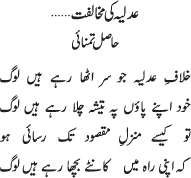 عدلیہ کی مخالفت......
حاصل تمنائی
خلافِ عدلیہ جو سر اٹھا رہے ہیں لوگ
خود اپنے پاؤں پہ تیشہ چلا رہے ہیں لوگ
تو کیسے منزلِ مقصود تک رسائی ہو
کہ اپنی راہ میں کانٹے بچھا رہے ہیں لوگ